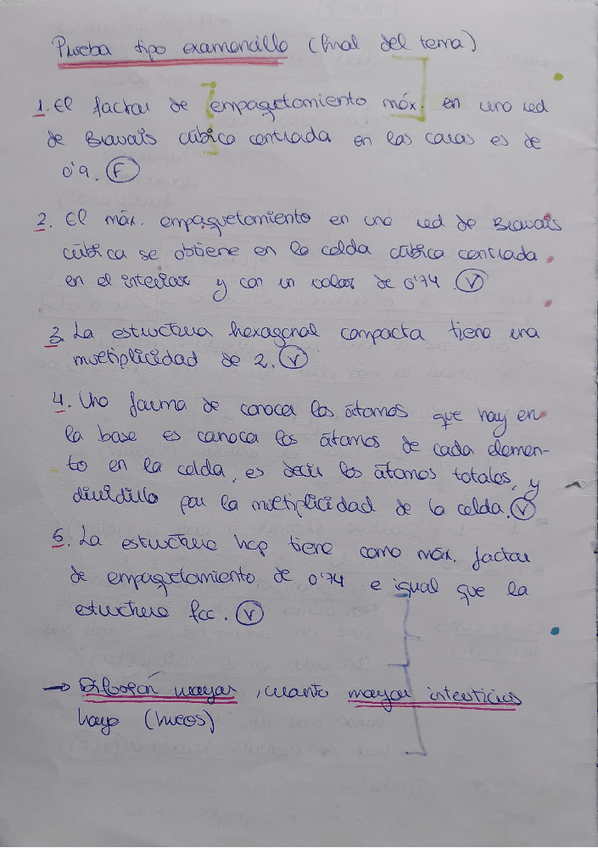 Prueba tipo examencillo (final del tema)
1. El factor de empaquetamiento máx. en una red
de Bravais cúbica centrada en las caras es de
0'9. (F)
2. El máx. empaquetamiento en una red de Bravais
cúbica se obtiene en la celda cúbica centrada
en el interior y con un valor de 0'74. (V)
3. La estructura hexagonal compacta tiene una
multiplicidad de 2. (V)
4. Una forma de conocer los átomos que hay en
la base es conocer los átomos de cada elemen-
to en la celda, es decir los átomos totales, y
dividirlo por la multiplicidad de la celda. (V)
5. La estructura hcp tiene como máx. factor
de empaquetamiento de 0'74 e igual que la
estructura fcc. (V)
→ Difusión mayor, cuanto mayor intersticios
haya (huecos)